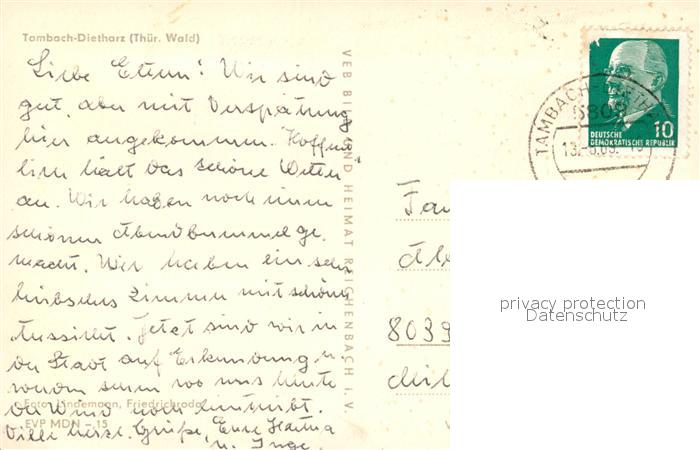 Tambach-Dietharz (Thür. Wald)
Liebe Eltern! Wir sind
gut, aber mit Verspätung
hier angekommen. Hoffent
lich hält das schöne Wetter
an. Wir haben noch einen
schönen Abendbummel ge
macht. Wir haben ein sehr
hübsches Zimmer mit schöner
Aussicht. Jetzt sind wir in
der Stadt auf Erkundung u.
wollen sehen wo uns heute
der Wind noch hintreibt.
Viele herzl. Grüße, Eure Hanna
u. Inge
Foto: Lindemann, Friedrichroda
EVP MDN -.15
VEB BILD UND HEIMAT REICHENBACH I. V.
TAMBACH-DIETH
5808
13.
10
DEUTSCHE
DEMOKRATISCHE REPUBLIK
8039
privacy protection
Datenschutz